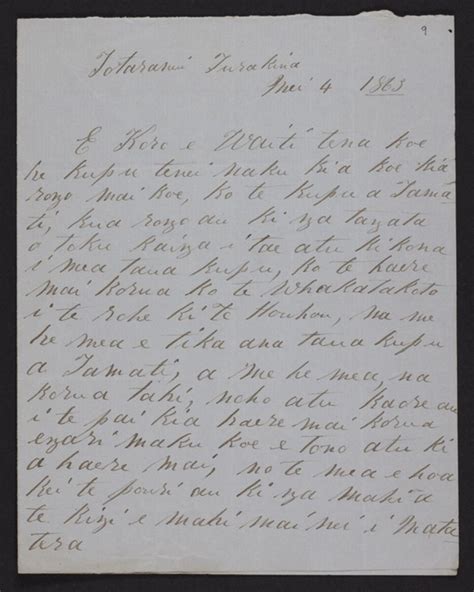 9
Totaranui Turakina
Mei 4 1863
E Koro e Waiti tena koe
he kupu tenei naku kia koe kia
rongo mai koe, ko te kupu a Tama
ti, kua rongo au ki nga tangata
o toku kainga i tae atu ki kona
i mea taua kupu, ko te haere
mai korua ko te Whakatakoto
i te rohe ki te Houhou, na me
he mea e tika ana taua kupu
a Tamati, a me he mea, na
korua tahi, noho atu kaore au
i te pai kia haere mai korua
engari maku koe e tono atu ki
a haere mai, no te mea e hoa
kei te pouri au ki nga mahi a
te kingi e mahi mai nei i Mata
tera